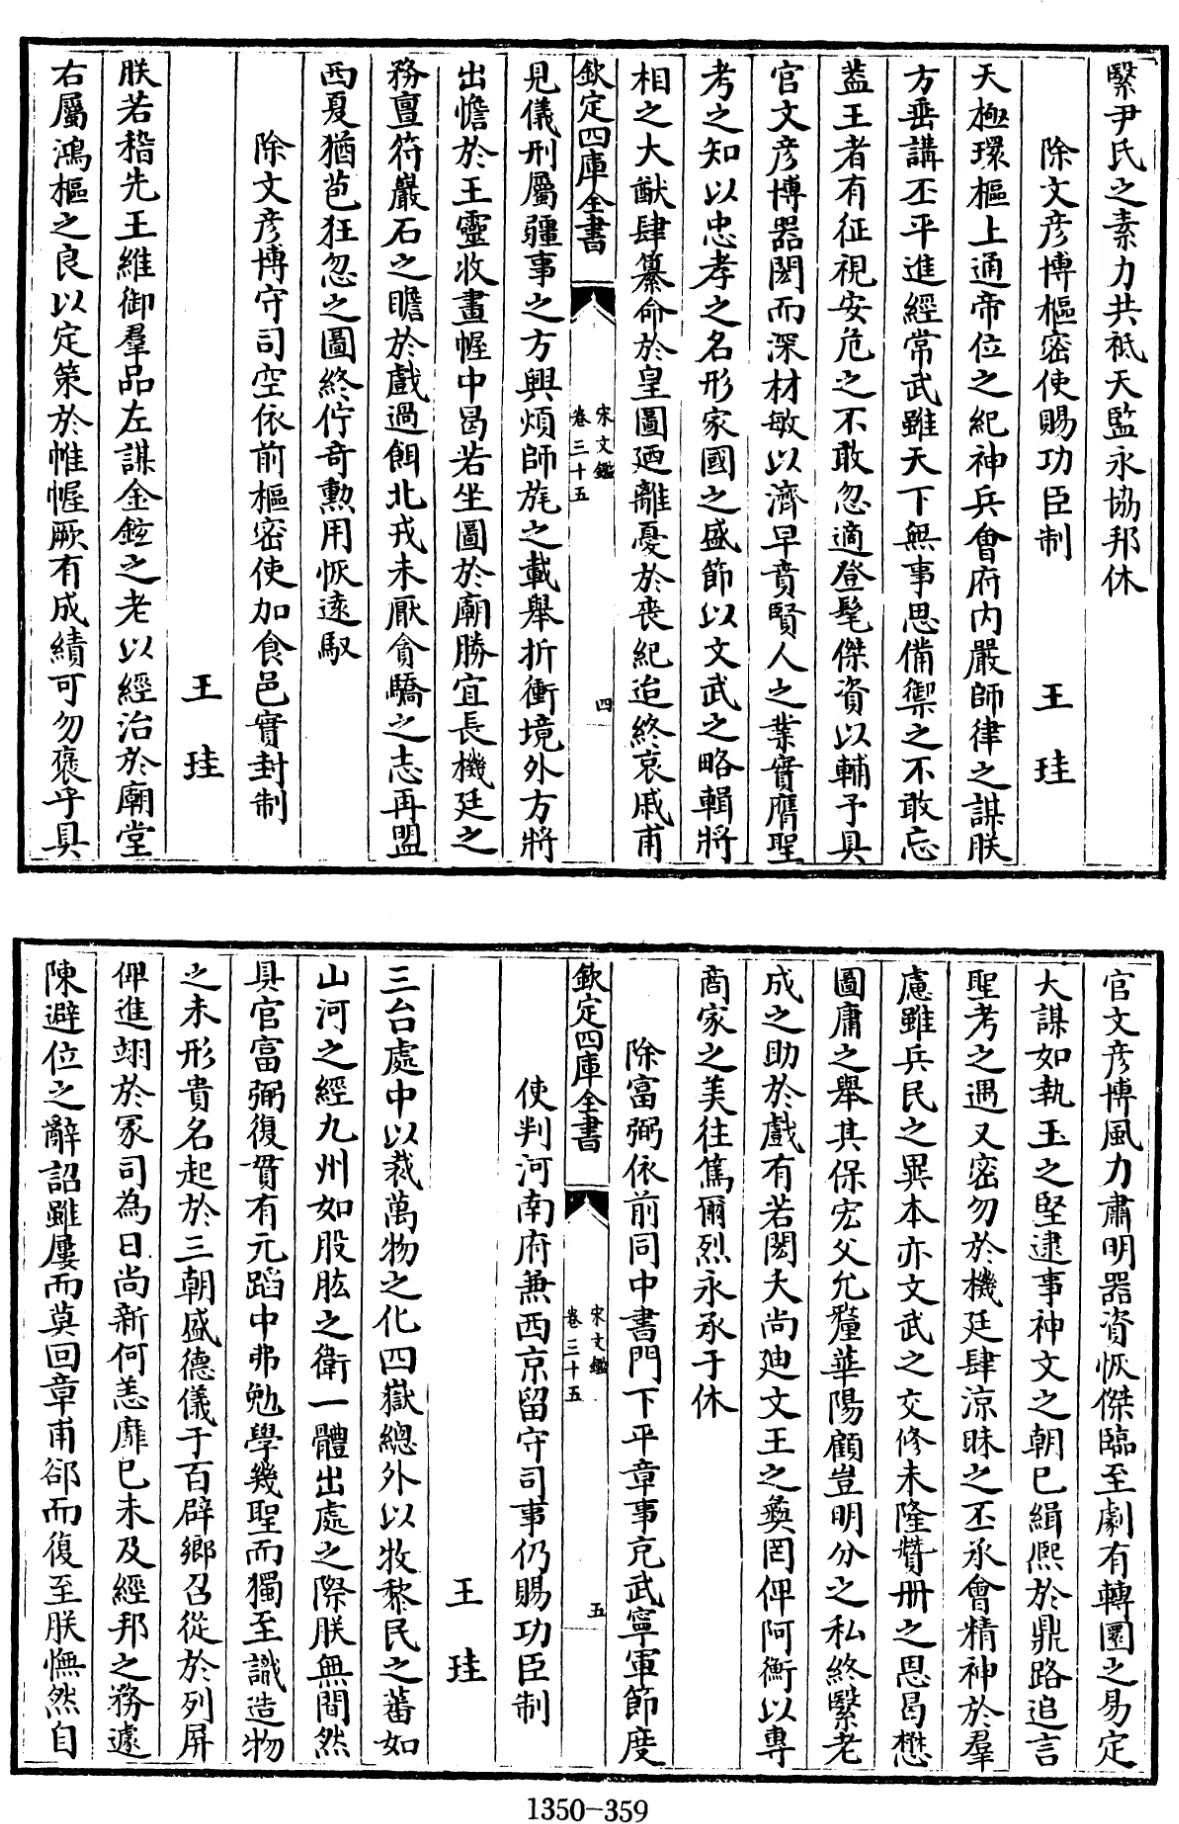 繄尹氏之素力共祗天監永協邦休
除文彦博樞密使賜功臣制
王珪
天極環樞上通帝位之紀神兵會府内嚴師律之謀朕
方垂講丕平進經常武雖天下無事思備禦之不敢忘
葢王者有征視安危之不敢忽適登髦傑資以輔予具
官文彦博器閎而深材敏以濟早賁賢人之業實膺聖
考之知以忠孝之名形家國之盛節以文武之略輯將
相之大猷肆纂命於皇圖廼離憂於喪紀迨終哀戚甫
欽定四庫全書
宋文鑑
卷三十五
四
見儀刑屬疆事之方興煩師旄之載舉折衝境外方將
出憺於王靈收畫幄中曷若坐圖於廟勝宜長機廷之
務亶符巖石之瞻於戲過餌北戎未厭貪驕之志再盟
西夏猶苞狂忽之圖終佇奇勲用恢逺馭
除文彦博守司空依前樞密使加食邑實封制
王珪
朕若稽先王維御羣品左謀金鉉之老以經治於廟堂
右屬鴻樞之良以定策於帷幄厥有成績可勿褒乎具
官文彦博風力肅明器資恢傑臨至劇有轉圜之易定
大謀如執玉之堅逮事神文之朝已緝熈於鼎路追言
聖考之遇又密勿於機廷肆涼昧之丕承會精神於羣
慮雖兵民之異本亦文武之交修未隆贊冊之恩曷懋
圖庸之舉其保宏父允釐華陽顧豈明分之私終繄老
成之助於戲有若閎夭尚廸文王之彝罔俾阿衡以專
商家之美往篤爾烈永承于休
除富弼依前同中書門下平章事充武寧軍節度
欽定四庫全書
宋文鑑
卷三十五
五
使判河南府兼西京留守司事仍賜功臣制
王珪
三台處中以裁萬物之化四嶽總外以牧黎民之蕃如
山河之經九州如股肱之衛一體出處之際朕無間然
具官富弼復貫有元蹈中弗勉學幾聖而獨至識造物
之未形貴名起於三朝盛德儀于百辟鄉召從於列屏
俾進翊於冢司為日尚新何恙靡已未及經邦之務遽
陳避位之辭詔雖屢而莫回章甫郤而復至朕憮然自
1350-359